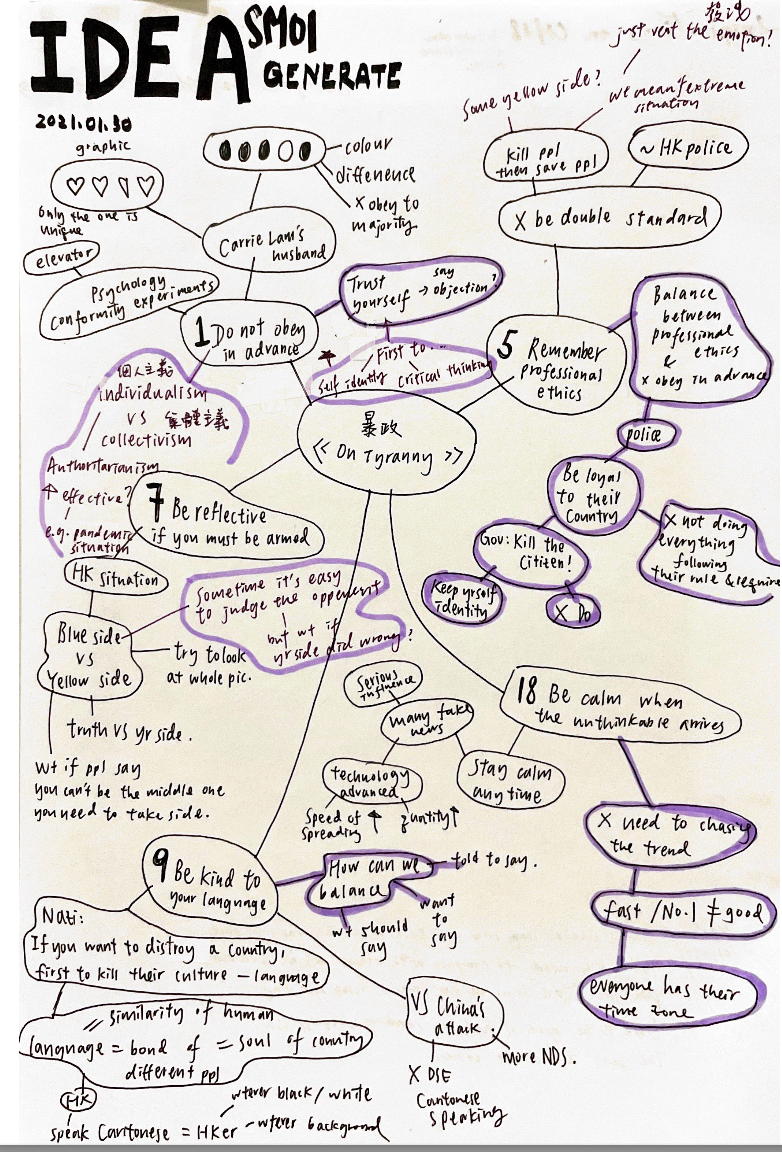 IDEA SMO1
GENERATE
2021.01.30
發泄
just vent the emotion!
same yellow side?
we meant extreme
situation
graphic
only the one is
unique
colour
difference
X obey to
majority
Carrie Lam's
husband
elevator
Psychology
conformity experiments
1 Do not obey
in advance
Trust
yourself → say
objection?
First to...
self identity
critical thinking
kill ppl
then save ppl
~ HK police
X be double standard
5 Remember
professional
ethics
Balance
between
professional
ethics
&
X obey in advance
police
Be loyal
to their
Country
Gov: Kill the
Citizen!
Keep yrself
identity
X Do
X not doing
everything
following
their rule & require
暴政
<< On Tyranny >>
個人主義
individualism
VS 集體主義
collectivism
Authoritarianism
↑ effective?
e.g. pandemic
situation
7 Be reflective
if you must be armed
HK situation
Blue side
VS
Yellow side
Sometime it's easy
to judge the opponent
but wt if
yr side did wrong?
try to look
at whole pic.
truth VS yr side.
wt if ppl say
you can't be the middle one
you need to take side.
18 Be calm when
the unthinkable arrives
Serious
influence
many fake
news
technology
advanced
Speed of
spreading ↑
quntity ↑
Stay calm
any time
X need to chasing
the trend
fast / No.1 ≠ good
everyone has their
time zone
9 Be kind to
your language
How can we
balance
told to say.
want
to
say
wt should
say
Nazi:
If you want to distroy a country,
first to kill their culture — language
// similarity of human
language = bond of = soul of country
different ppl
HK
speak Cantonese = HKer
wtever black / white
wtever background
VS China's
attack.
more NDS.
X DSE
Cantonese
speaking